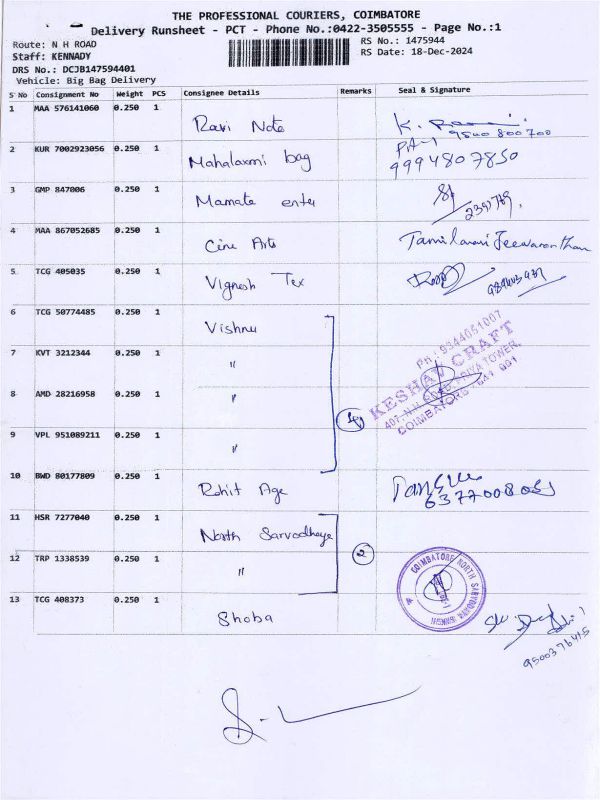 THE PROFESSIONAL COURIERS, COIMBATORE
Delivery Runsheet - PCT - Phone No.:0422-3505555 - Page No.:1
Route: N H ROAD
RS No.: 1475944
Staff: KENNADY
RS Date: 18-Dec-2024
DRS No.: DCJB147594401
Vehicle: Big Bag Delivery
S No Consignment No Weight PCS Consignee Details Remarks Seal & Signature
1 MAA 576141060 0.250 1 Ravi Note K.
9500800700
2 KUR 7002923056 0.250 1 Mahalaxmi bag
9994807850
3 GMP 847006 0.250 1 Mamata enter
4 MAA 867052685 0.250 1 Cine Arts
5 TCG 405035 0.250 1 Vignesh Tex
6 TCG 50774485 0.250 1 Vishnu
7 KVT 3212344 0.250 1 "
8 AMD 28216958 0.250 1 "
9 VPL 951089211 0.250 1 "
Ph : 9344651007
KESHAV CRAFT
TOWER,
COIMBATORE - 641 001
10 BWD 80177809 0.250 1 Rohit Age
11 HSR 7277040 0.250 1 North Sarvodhaya
12 TRP 1338539 0.250 1 " 2
COIMBATORE NORTH SARVODAYA
13 TCG 408373 0.250 1 Shoba
9500376415